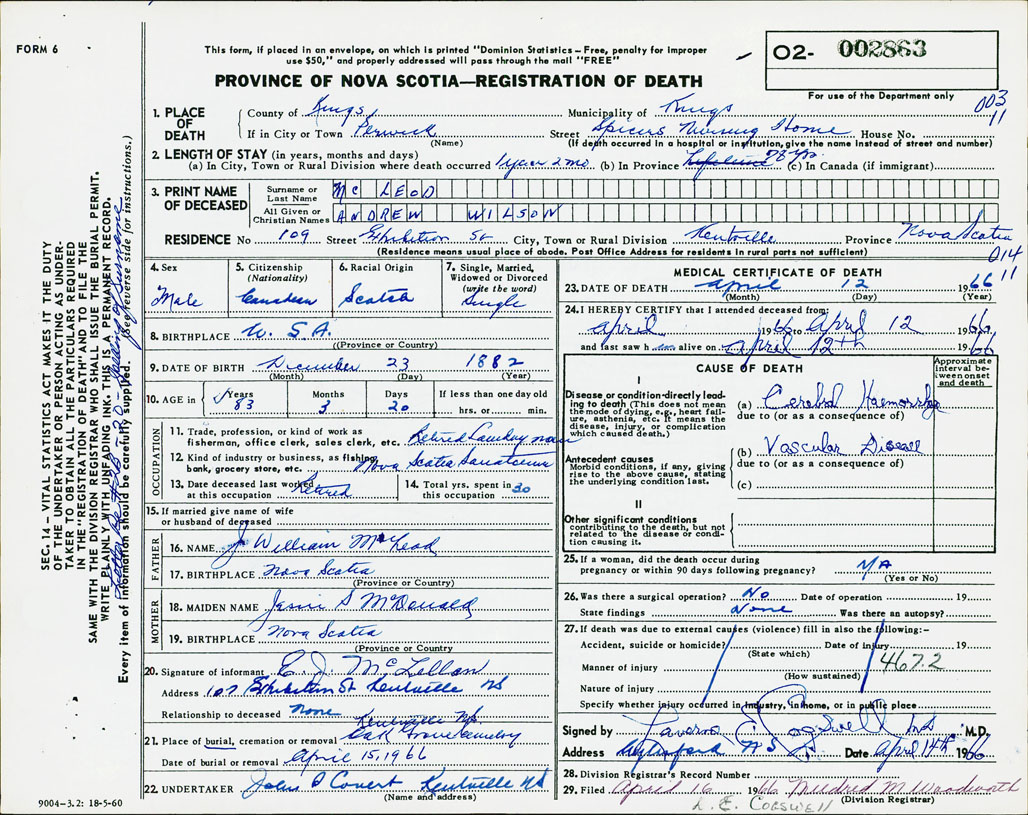 FORM 6
This form, if placed in an envelope, on which is printed "Dominion Statistics – Free, penalty for improper
use $50," and properly addressed will pass through the mail "FREE"
PROVINCE OF NOVA SCOTIA—REGISTRATION OF DEATH
02- 002863
For use of the Department only
003
11
1. PLACE OF DEATH
County of Kings Municipality of Kings
If in City or Town Berwick Street Spicers Nursing Home House No.
(Name) (If death occurred in a hospital or institution, give the name instead of street and number)
2. LENGTH OF STAY (in years, months and days)
(a) In City, Town or Rural Division where death occurred 1 year 2 mo (b) In Province 78 yrs. (c) In Canada (if immigrant)
3. PRINT NAME OF DECEASED
Surname or Last Name Mc LEOD
All Given or Christian Names ANDREW WILSON
RESIDENCE No 109 Street Exhibition St City, Town or Rural Division Kentville Province Nova Scotia
(Residence means usual place of abode. Post Office Address for residents in rural parts not sufficient)
014
11
4. Sex Male
5. Citizenship (Nationality) Canadian
6. Racial Origin Scotch
7. Single, Married, Widowed or Divorced (write the word) Single
8. BIRTHPLACE U. S. A.
(Province or Country)
9. DATE OF BIRTH December 23 1882
(Month) (Day) (Year)
10. AGE in Years 83 Months 3 Days 20 If less than one day old hrs. or min.
OCCUPATION
11. Trade, profession, or kind of work as fisherman, office clerk, sales clerk, etc. Retired Laundry man
12. Kind of industry or business, as fishing, bank, grocery store, etc. Nova Scotia Sanatorium
13. Date deceased last worked at this occupation Retired
14. Total yrs. spent in this occupation 30
15. If married give name of wife or husband of deceased
FATHER
16. NAME J William McLeod
17. BIRTHPLACE Nova Scotia
(Province or Country)
MOTHER
18. MAIDEN NAME Jessie S McDonald
19. BIRTHPLACE Nova Scotia
(Province or Country)
20. Signature of informant E. J. McLellan
Address 107 Exhibition St Kentville NS
Relationship to deceased None
Kentville NS.
21. Place of burial, cremation or removal Oak Grove Cemetery
Date of burial or removal April 15, 1966
22. UNDERTAKER John D Covert Kentville NS
(Name and address)
9004-3.2: 18-5-60
MEDICAL CERTIFICATE OF DEATH
23. DATE OF DEATH April 12 1966
(Month) (Day) (Year)
24. I HEREBY CERTIFY that I attended deceased from:
April 1966 to April 12 1966
and last saw him alive on April 12th 1966
CAUSE OF DEATH
Approximate interval between onset and death
I
Disease or condition directly leading to death (This does not mean the mode of dying, e.g., heart failure, asthenia, etc. It means the disease, injury, or complication which caused death.)
(a) Cerebral Haemorrhage
due to (or as a consequence of)
Antecedent causes
Morbid conditions, if any, giving rise to the above cause, stating the underlying condition last.
(b) Vascular Disease
due to (or as a consequence of)
(c)
II
Other significant conditions
contributing to the death, but not related to the disease or condition causing it.
25. If a woman, did the death occur during pregnancy or within 90 days following pregnancy? N/A
(Yes or No)
26. Was there a surgical operation? No Date of operation 19
State findings None Was there an autopsy?
27. If death was due to external causes (violence) fill in also the following:–
Accident, suicide or homicide? Date of injury 19
(State which)
Manner of injury 467.2
(How sustained)
Nature of injury
Specify whether injury occurred in industry, in home, or in public place
Signed by Laverne E Cogswell M.D.
Address N S Date April 14th 1966
28. Division Registrar's Record Number
29. Filed April 16 1966 Mildred M Woodworth
(Division Registrar)
L. E. COGSWELL
SEC. 14 – VITAL STATISTICS ACT MAKES IT THE DUTY
OF THE UNDERTAKER OR PERSON ACTING AS UNDER-
TAKER TO OBTAIN ALL THE PARTICULARS REQUIRED
IN THE "REGISTRATION OF DEATH" AND TO FILE THE
SAME WITH THE DIVISION REGISTRAR WHO SHALL ISSUE THE BURIAL PERMIT.
WRITE PLAINLY WITH UNFADING INK. THIS IS A PERMANENT RECORD.
Every item of information should be carefully supplied. (See reverse side for instructions.)
spelling of surname